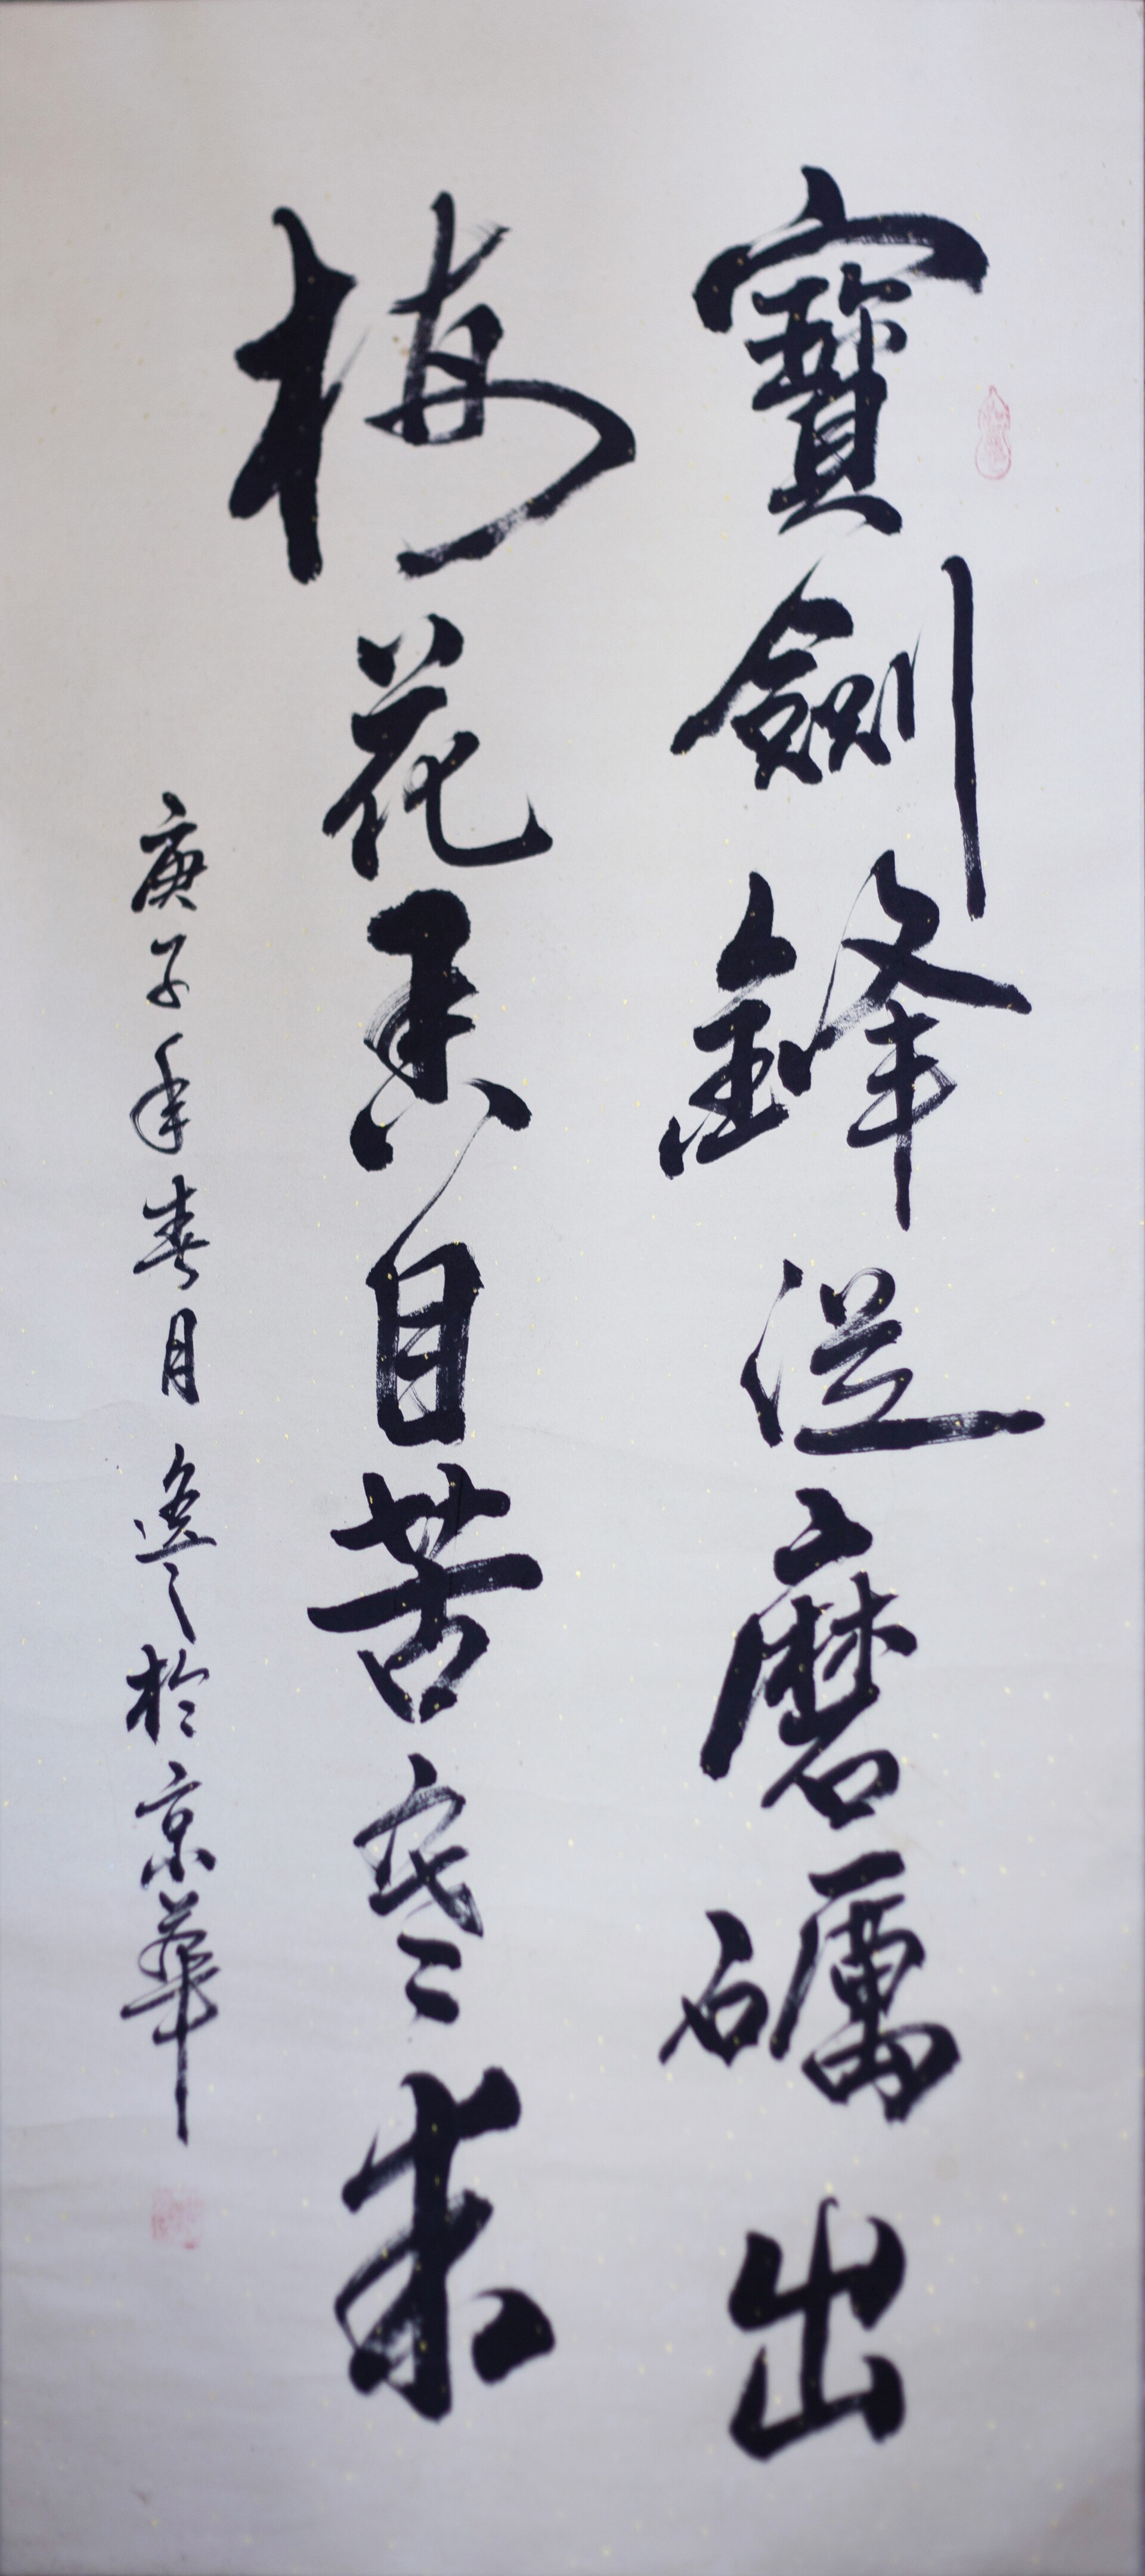 寶劍鋒從磨礪出
梅花香自苦寒來
庚子年春月逸之於京華